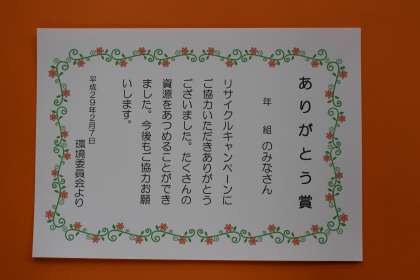 ありがとう賞
年　組　のみなさん
リサイクルキャンペーンに
ご協力いただきありがとう
ございました。たくさんの
資源をあつめることができ
ました。今後もご協力お願
いします。
平成２９年２月７日
環境委員会より